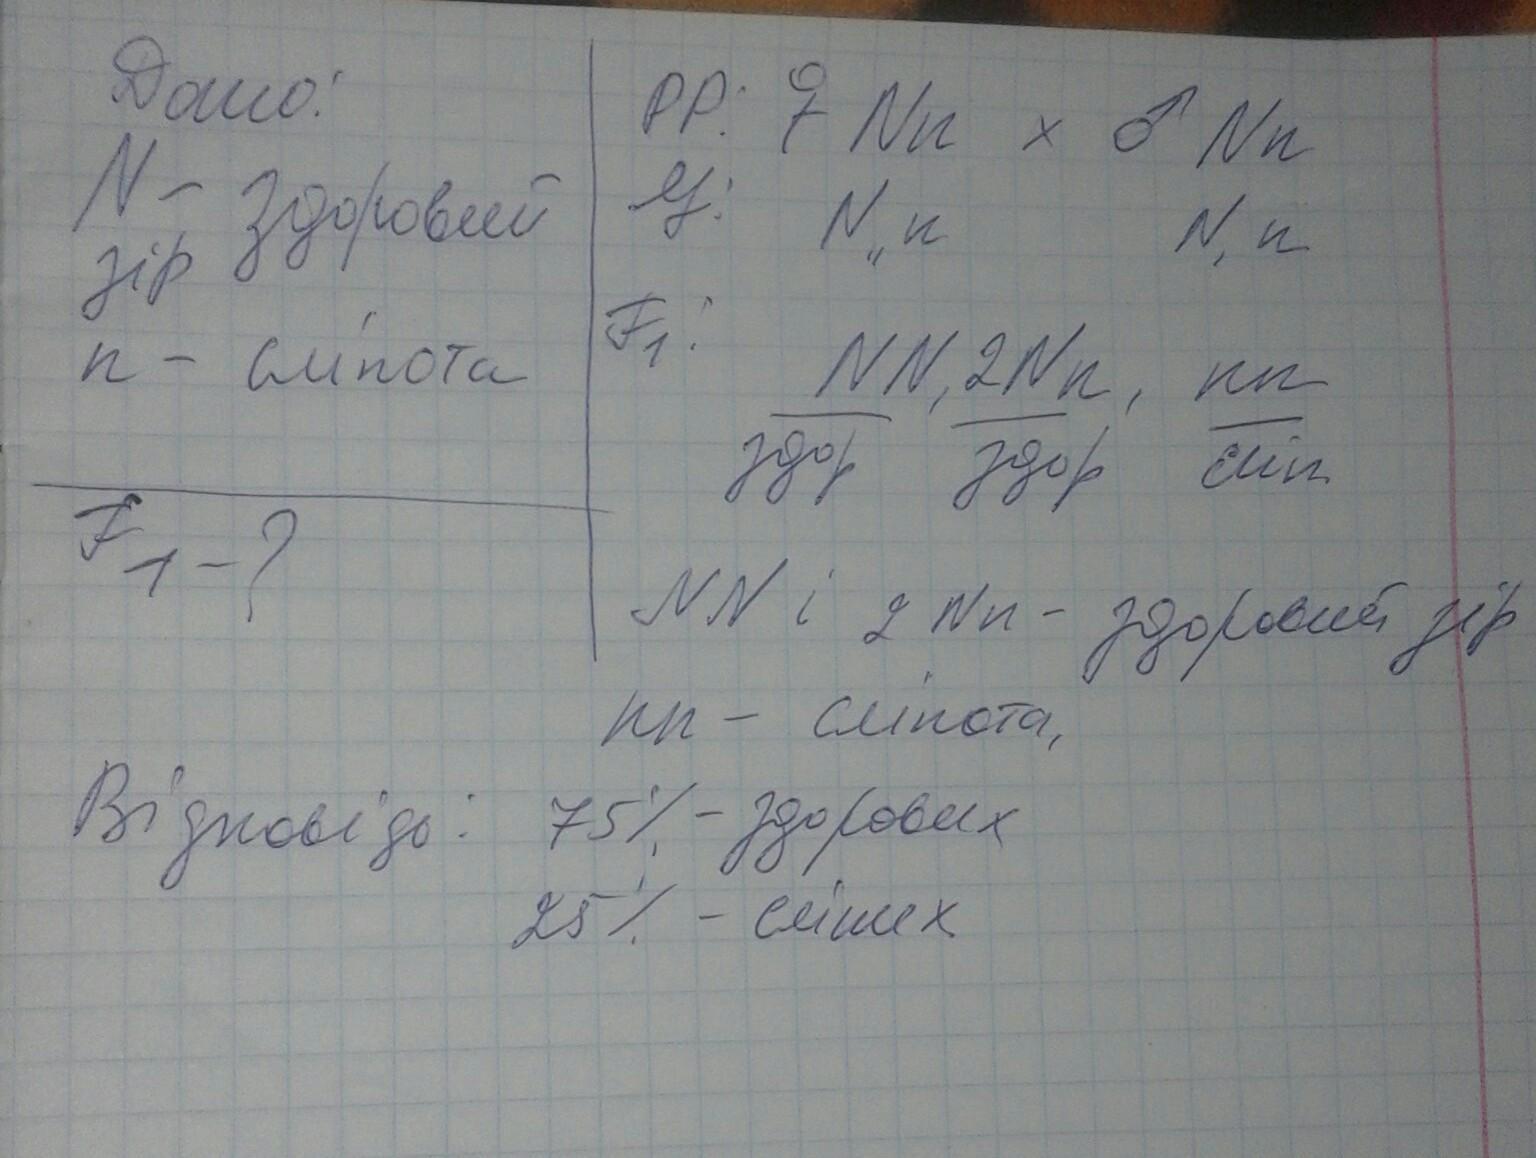 Дано:
N - здоровий
зір
n - сліпота
F1 - ?
PP: ♀ Nn x ♂ Nn
G: N, n N, n
F1:
NN, 2Nn, nn
здор здор сліп
NN і 2 Nn - здоровий зір
nn - сліпота,
Відповідь: 75% - здорових
25% - сліпих